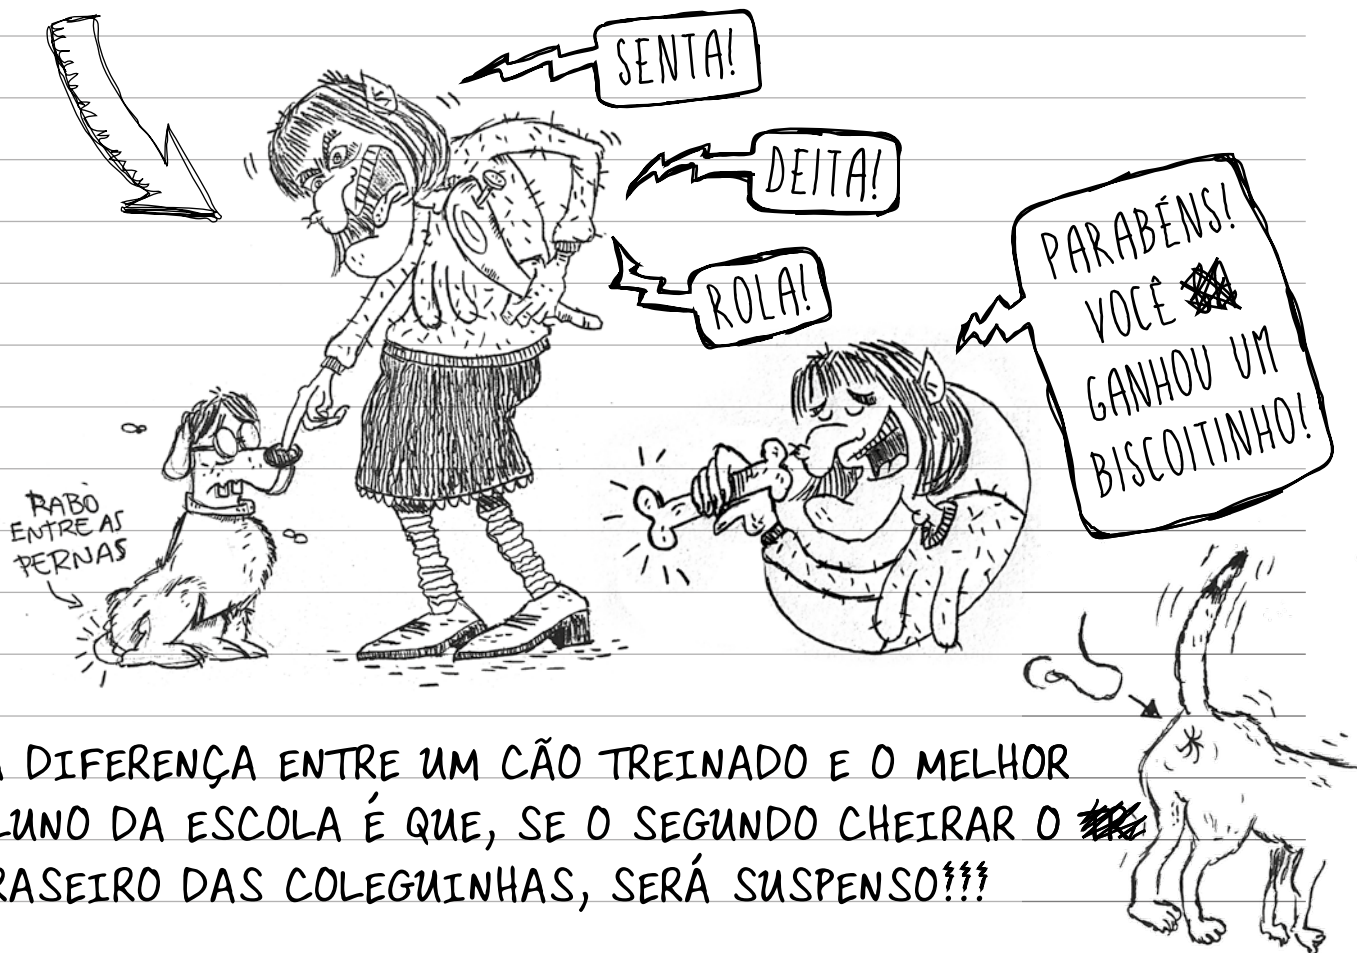 SENTA!
DEITA!
ROLA!
PARABÉNS!
VOCÊ
GANHOU UM
BISCOITINHO!
RABO
ENTRE AS
PERNAS
A DIFERENÇA ENTRE UM CÃO TREINADO E O MELHOR
LUNO DA ESCOLA É QUE, SE O SEGUNDO CHEIRAR O
RASEIRO DAS COLEGUINHAS, SERÁ SUSPENSO!!!